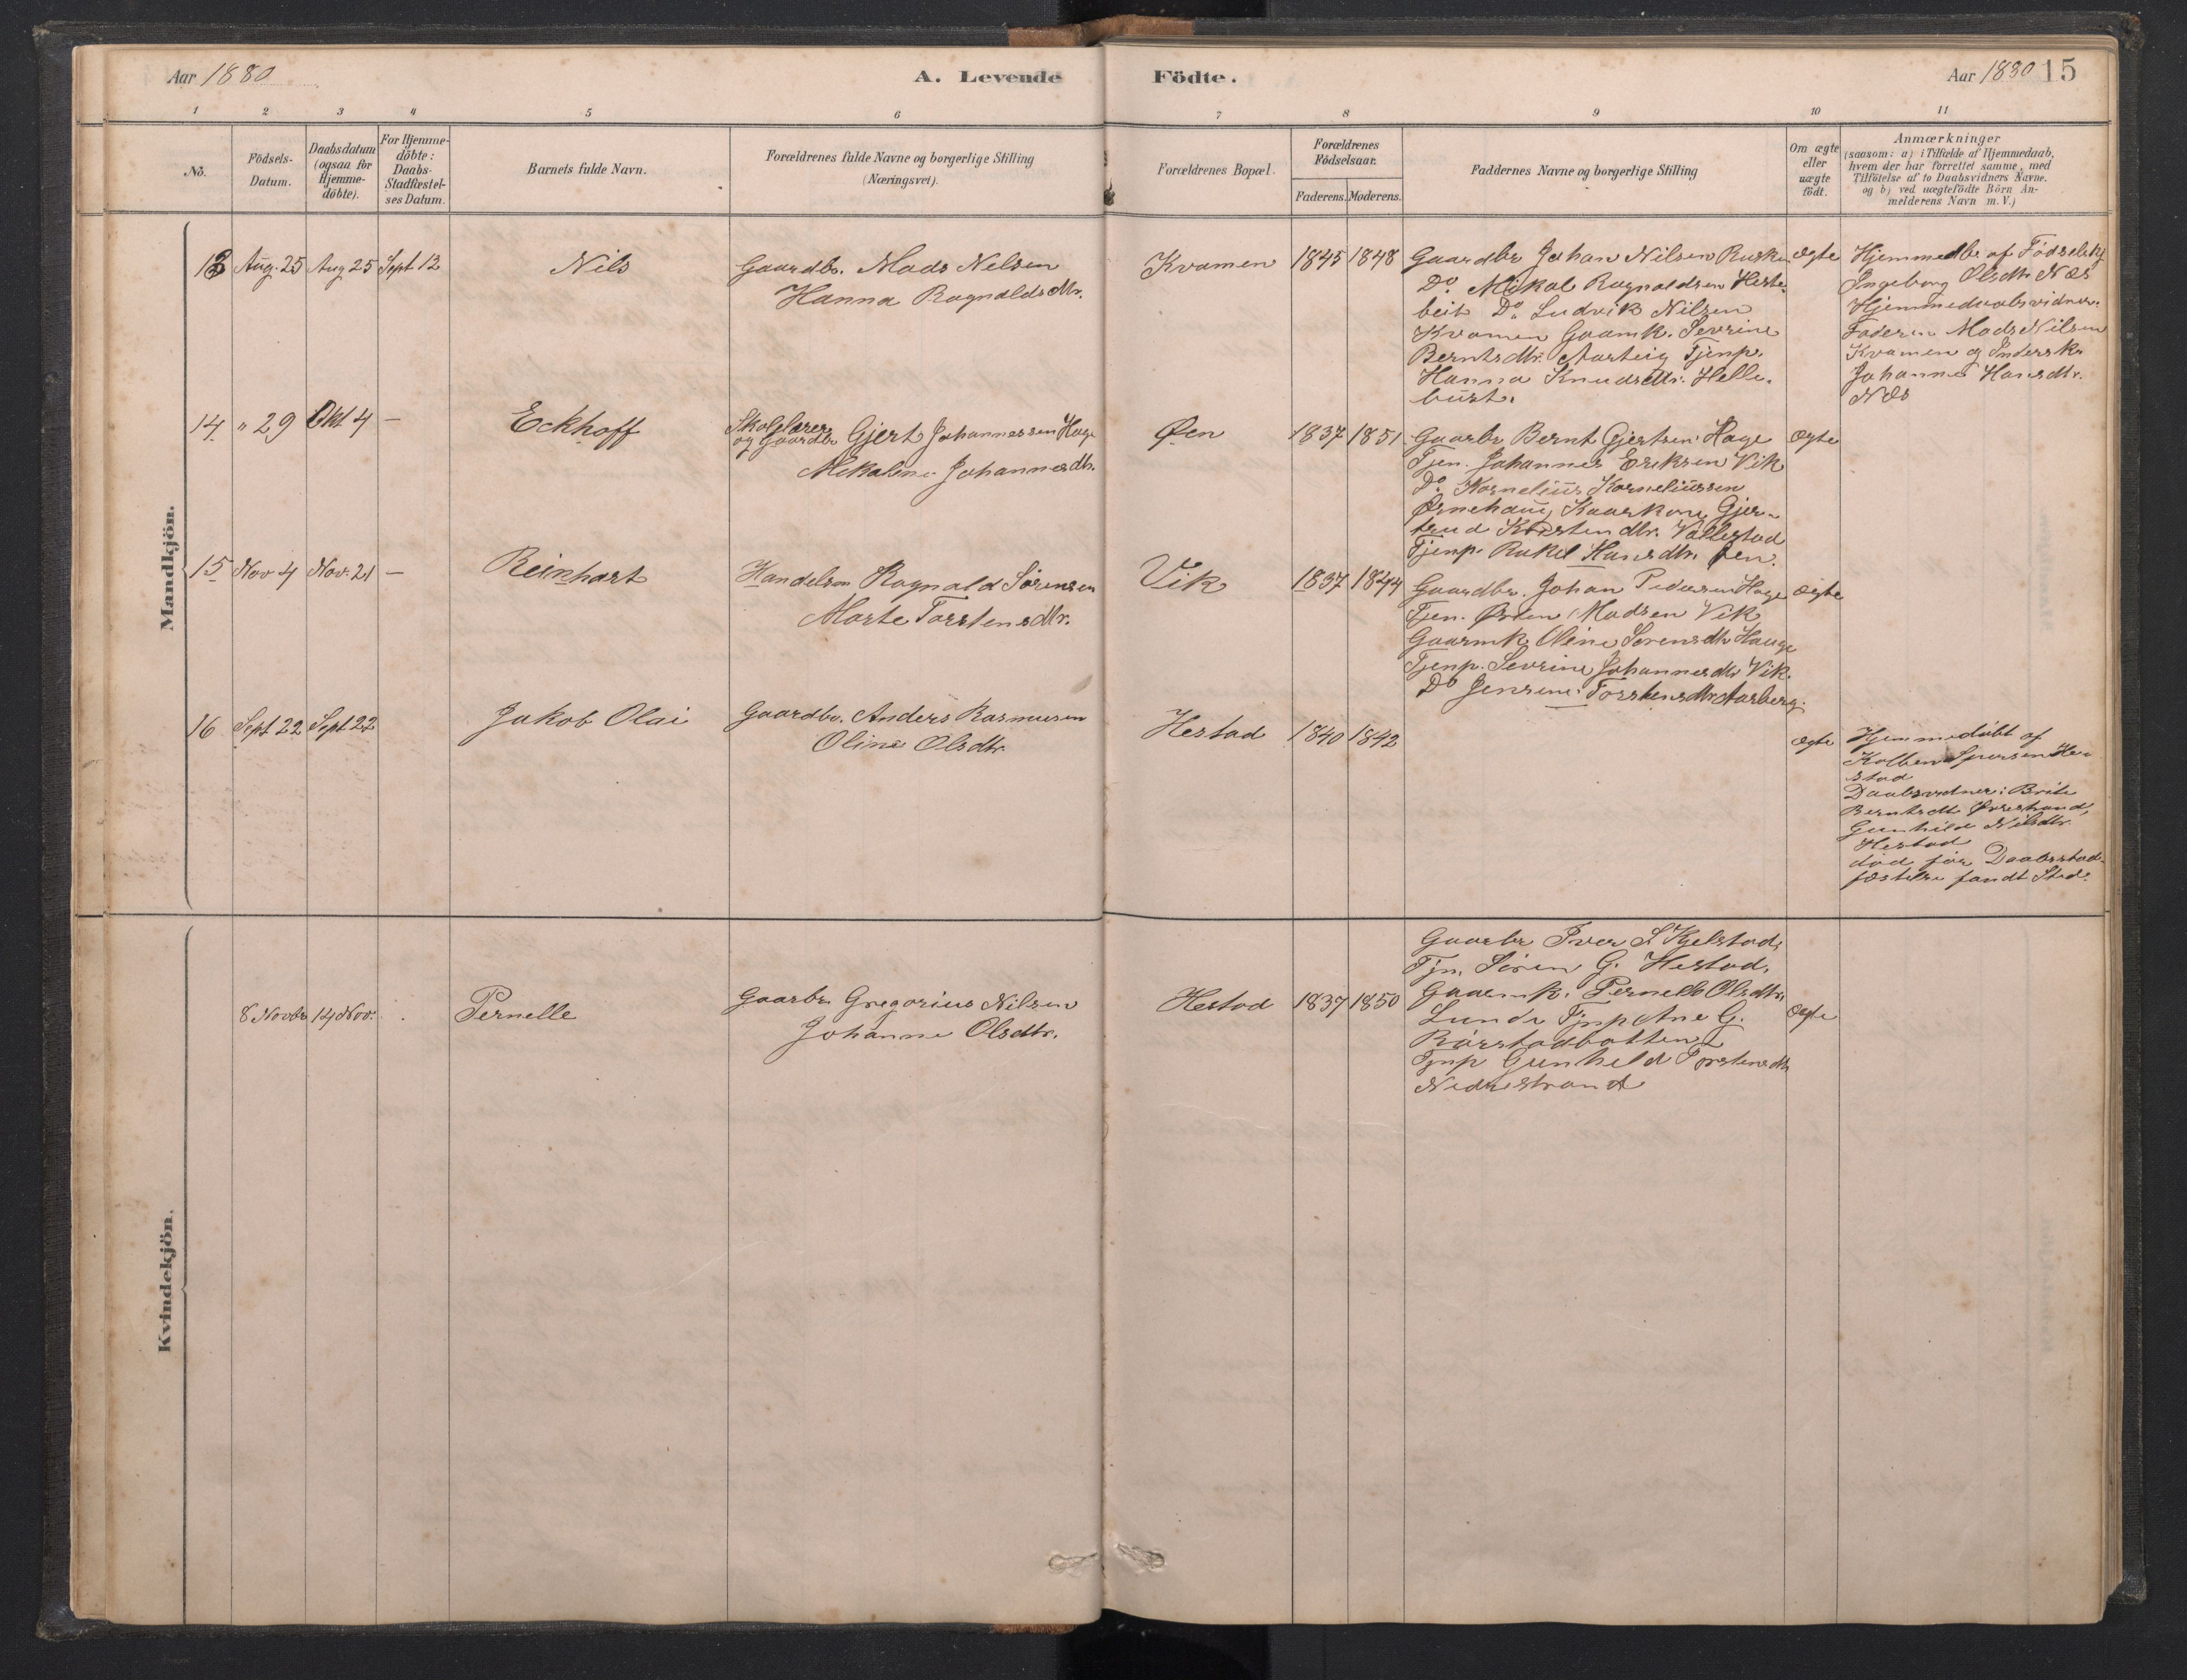 Aar 1880
A. Levende
Födte.
Aar 1880 15
1 2 3 4 5 6 7 8 9 10 11
No.
Födsels-
Datum.
Daabsdatum
(ogsaa for
Hjemme-
döbte).
For Hjemme-
döbte:
Daabs-
Stadfæstel-
ses Datum.
Barnets fulde Navn.
Forældrenes fulde Navne og borgerlige Stilling
(Næringsvei).
Forældrenes Bopæl.
Forældrenes
Födselsaar.
Faderens. Moderens.
Faddernes Navne og borgerlige Stilling
Om ægte
eller
uægte
födt.
Anmærkninger
(saasom: a) i Tilfælde af Hjemmedaab,
hvem der har forrettet samme, med
Tilföielse af to Daabsvidners Navne.
og b) ved uægtefödte Börn An-
melderens Navn m. V.)
Mandkjön.
13 Aug. 25 Aug 25 Sept 12
Nils
Gaardbr. Mads Nilsen
Hanna Ragnaldsdtr.
Kvamen 1845 1848
Gaardbr Johan Nilsen
Do. Mikal Ragnaldsen Heste-
beit Do. Ludvik Nilsen
Kvamen Gaamk. Sevrine
Berntsdtr. Aarteig Tjenp.
Hanna Knudsdtr. Helle-
bust.
ægte
Hjemmedbr af Födselshj
Ingeborg Olsdtr Næs
Hjemmedaabsvidner:
Faderen Mads Nilsen
Kvamen og Indersk.
Johanne Hansdtr.
Næs
14 " 29 Okt 4 —
Eckhoff
Skolelærer
og Gaardbr Gjert Johannessen Hage
Mikaline Johannesdtr.
Øen 1837 1851
Gaarbr Bernt Gjertsen Hage
Tjen. Johannes Eriksen Vik
Do. Kornelius Korneliussen
Ørnehaug Kaarkone Gjer-
trud Karstendtr. Vallestad
Tjenp. Rakel Hansdtr. Øen.
Ægte
15 Nov 4 Nov. 21 —
Reinhart
Handelsm Ragnald Sörensen
Marte Torstensdtr.
Vik 1837 1844
Gaardbr. Johan Pedersen Hage
Tjen. Östen Madsen Vik
Gaarmk Oline Sörensdtr Hauge
Tjenp. Sevrine Johannesdtr Vik.
Do Jensine Torstensdtr Aarberg.
ægte
16 Sept 22 Sept 22
Jakob Olai
Gaardbr. Anders Rasmusen
Oline Olsdtr.
Hestad 1840 1842
ægte
Hjemmedöbt af
Kolben Sjursen He-
stad
Daabsvidner: Brite
Berntsdtr Øvrestrand,
Gunhild Nilsdtr.
Hestad
död för Daabsstad-
fæstelse fandt Sted.
Kvindekjön.
8 Novbr 14 Nov.
Pernelle
Gaarbr Gregorius Nilsen
Johanne Olsdtr.
Hestad 1837 1850
Gaarbr Iver S Kjelstad,
Tjn. Sören G. Hestad,
Gaarmk. Pernelle Olsdtr.
Lunde Tjnp Ane G.
Rörstadbotten
Tjnp Gunhild Torstensdtr
Nedrestrand
Ægte